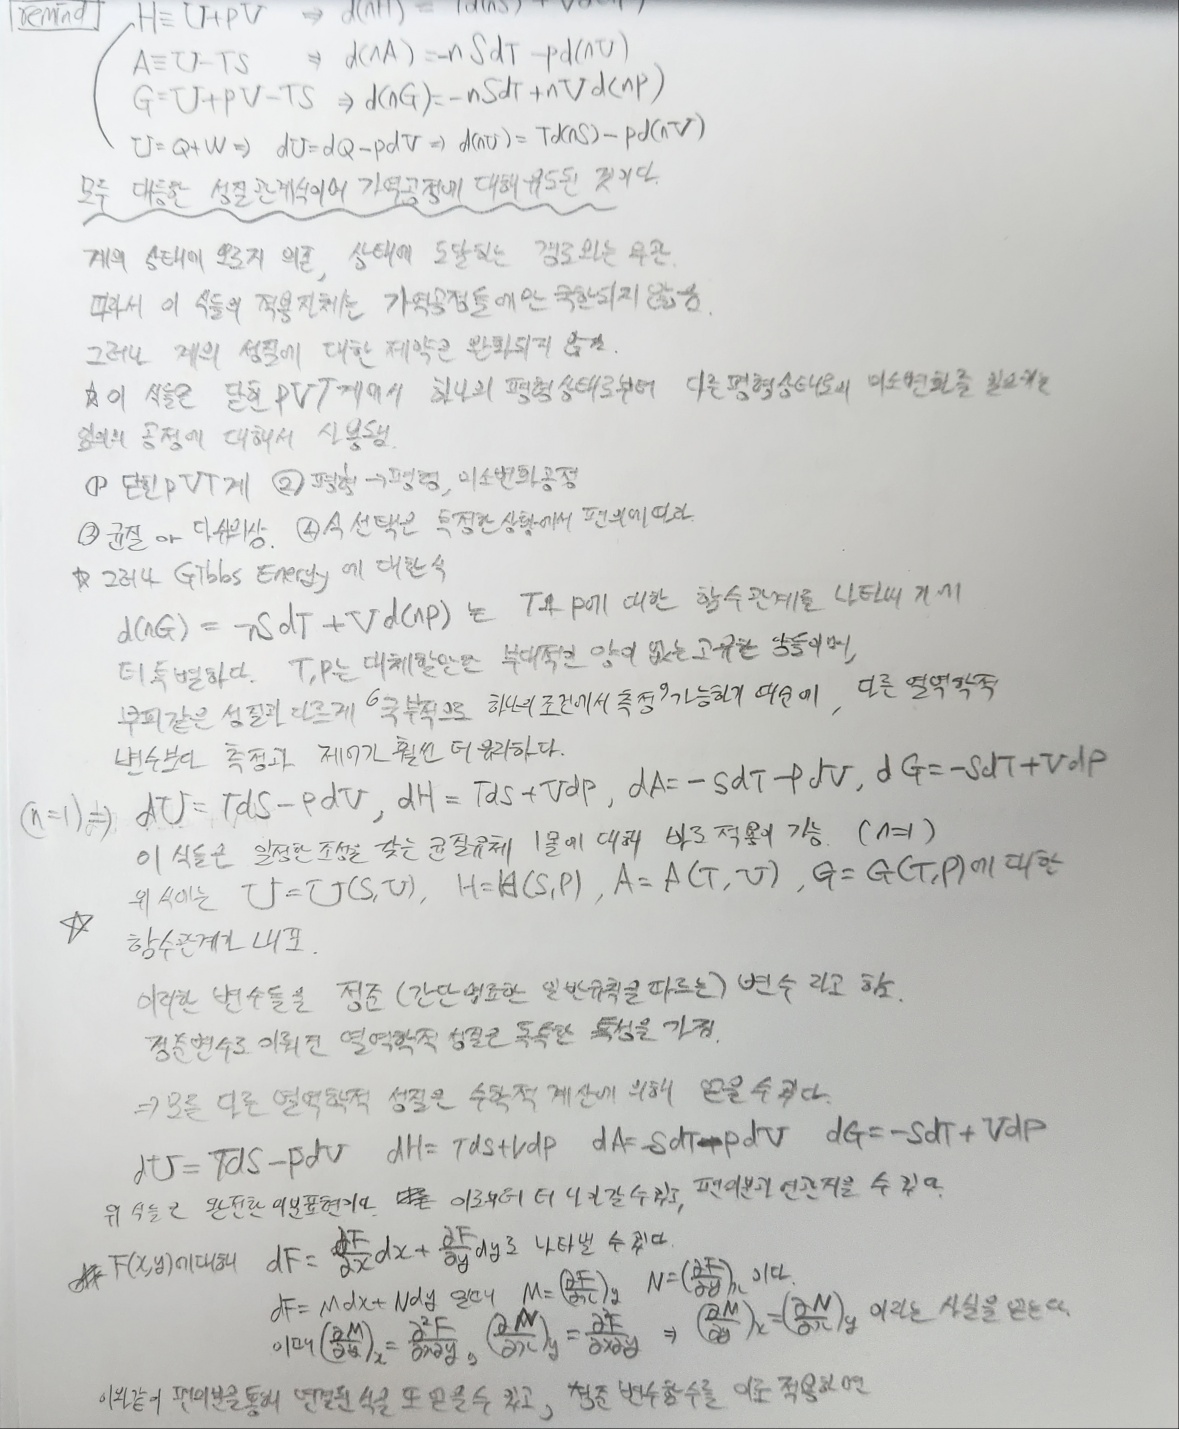 remind H≡U+PV ⇒ d(nH) = Td(nS) + Vd(nP)
A≡U-TS ⇒ d(nA) = -nSdT - pd(nU)
G=U+PV-TS ⇒ d(nG)= -nSdT + nVd(nP)
U=Q+W ⇒ dU=dQ-pdV ⇒ d(nU) = Td(nS) - pd(nV)
모두 대등한 성질관계식이며 가역공정에 대해 유도된 것이다.
계의 상태에 오로지 의존, 상태에 도달되는 경로와는 무관.
따라서 이 식들의 적용자체는 가역공정들에만 국한되지 않음.
그러나 계의 성질에 대한 제약은 완화되지 않음.
☆이 식들은 닫힌 PVT계에서 하나의 평형상태로부터 다른평형상태로의 미소변화를 일으키는
임의의 공정에 대해서 사용됨.
① 닫힌 PVT계 ② 평형→평형, 미소변화공정
③ 균질 or 다수의상. ④ 식 선택은 특정한 상황에서 편의에 따라.
☆ 그러나 Gibbs Energy에 대한 식
d(nG) = -nSdT + Vd(nP) 는 T와 P에 대한 함수관계를 나타내기에
더 특별하다. T,P는 대체할만한 부대적인 양이 없는 고유한 양들이며,
부피같은 성질과 다르게 "국부적으로 하나의 조건에서 측정"가능하기 때문에, 다른 열역학적
변수보다 측정과 제어가 훨씬 더 용이하다.
(n=1)⇒ dU = TdS - PdV, dH = Tds + Vdp, dA= -sdT -PdV, dG= -SdT + VdP
이 식들은 일정한 조성을 갖는 균질유체 1몰에 대해 바로 적용이 가능. (n=1)
위 식에는 U=U(S,V), H=H(S,P), A=A(T,V), G=G(T,P)에 대한
☆ 함수관계가 내포.
이러한 변수들을 정준(간단명료한 일반규칙을 따르는) 변수 라고 함.
정준변수로 이뤄진 열역학적 성질은 독특한 특성을 가짐.
⇒ 모든 다른 열역학적 성질은 수학적 계산에 의해 얻을 수 있다.
dU = TdS - PdV dH = Tds+Vdp dA=-SdT-pdV dG=-SdT + VdP
위 식들은 완전한 미분표현이며 이로부터 더 나아갈 수 있고, 편미분과 연관지을 수 있다.
F(x,y)에 대해 dF = ∂F/∂x dx + ∂F/∂y dy로 나타낼 수 있다.
dF= Mdx + Ndy 일때 M=(∂F/∂x)y N=(∂F/∂y)x 이다.
이때 (∂M/∂y)x = ∂²F/∂x∂y, (∂N/∂x)y = ∂²F/∂x∂y ⇒ (∂M/∂y)x = (∂N/∂x)y 이라는 사실을 얻는다.
이와같이 편미분을 통해 연결된 식을 또 얻을 수 있고, 정준 변수함수를 이로 적용하면